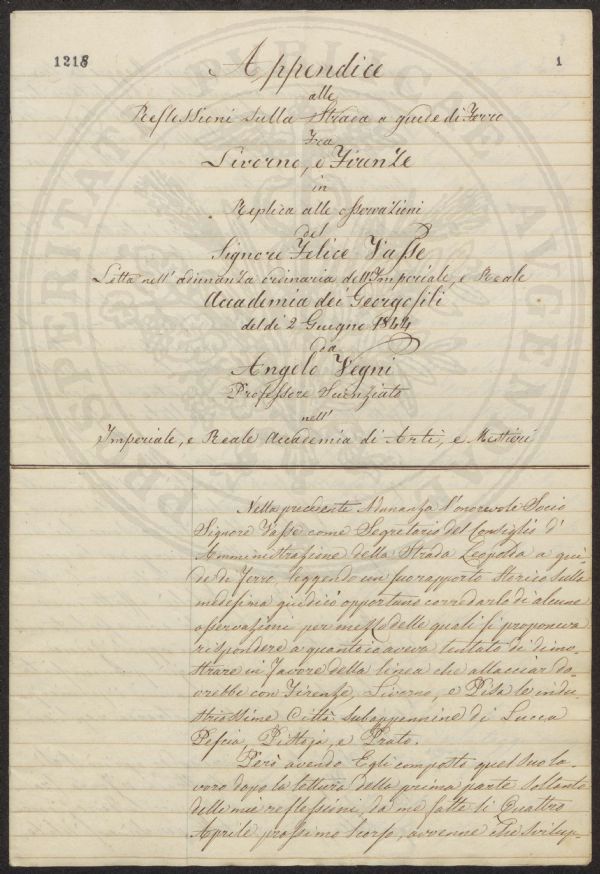 1218
1
Appendice
alle
Reflessioni sulla Strada a guide di Ferro
Fra
Livorno, e Firenze
in
Replica alle osservazioni
del
Signore Felice Vasse
Letta nell' adunanza ordinaria dell'Imperiale, e Reale
Accademia dei Georgofili
del dì 2 Giugno 1844
da
Angelo Vegni
Professore Scienziato
nell'
Imperiale, e Reale Accademia di Arti, e Mestieri
Nella precedente Adunanza l'onorevole Socio
Signore Vasse come Segretario del Consiglio d'
Amministrazione della Strada Leopolda a gui-
de di Ferro, leggendo un suo rapporto Storico sulla
medesima giudicò opportuno corredarlo di alcune
osservazioni per mezzo delle quali si proponeva
rispondere a quanto io aveva tentato di dimo-
strare in favore della linea che allacciar do-
vrebbe con Firenze, Livorno, e Pisa le indu-
striosissime Città subappennine di Lucca
Pescia, Pistoja, e Prato.
Però avendo Egli composto quel suo la-
voro dopo la lettura della prima parte soltanto
delle mie reflessioni, da me fatte lì Quattro
Aprile prossimo scorso, avvenne che svilup-